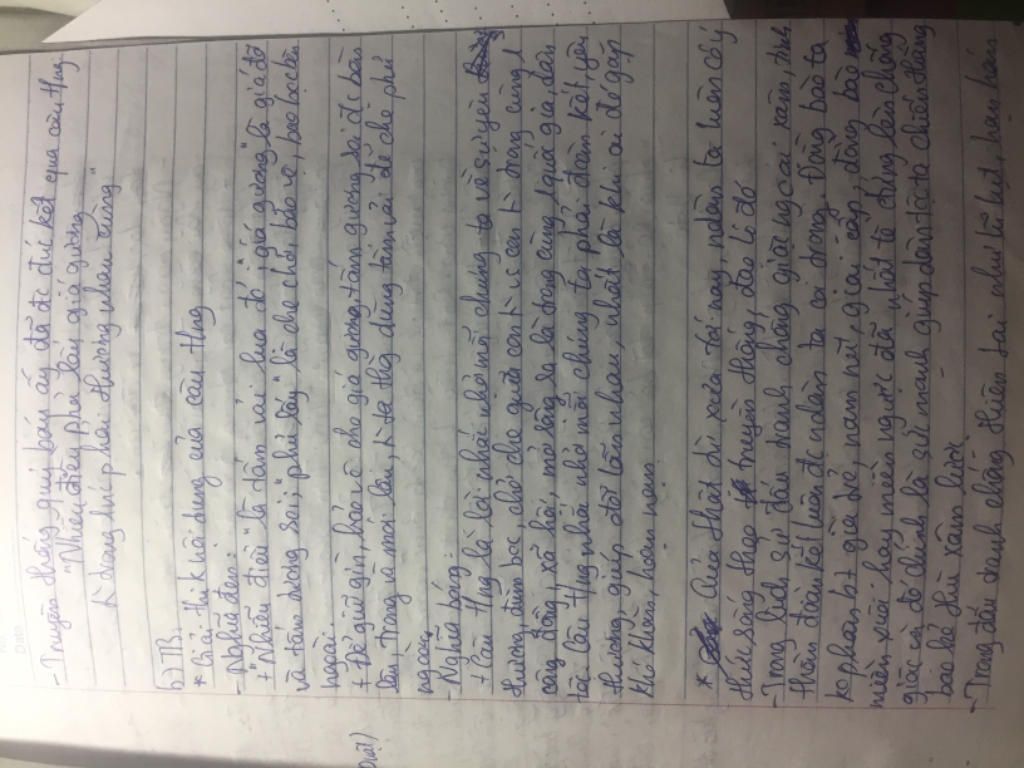 - Truyền thống quý báu ấy đã đc đúc kết qua câu thng:
"Nhiễu điều phủ lấy giá gương
Ng trong 1 nc phải thương nhau cùng"
b) TB.
* Giải thik nội dung của câu thng
- Nghĩa đen:
+ "Nhiễu điều" là tấm vải lụa đỏ, "giá gương" là giá đỡ
và tấm gương soi, "phủ lấy" là che chở, bảo vệ, bao bọc bên
ngoài
+ Để giữ gìn, bảo vệ cho giá gương, tấm gương soi đc bền
lâu, trong và mới lâu, ng ta thg dùng tấm vải để che phủ
ngoài
- Nghĩa bóng:
+ Câu thng là lời nhắc nhở mỗi chúng ta về sự yêu
thương, đùm bọc, chở che giữa con ng vs con ng trong cùng 1
cộng đồng, xã hội, mở rộng ra là trong cùng 1 quốc gia, dân
tộc. Câu thng nhắc nhở mỗi chúng ta phải đoàn kết, yêu
thương, giúp đỡ lẫn nhau, nhất là khi ai đó gặp
khó khăn, hoạn nạn.
* Quả thật từ xưa tới nay, nhân ta luôn có ý
thức sống theo truyền thống, đạo lí đó
- Trong lịch sử đấu tranh chống giặc ngoại xâm, tinh
thần đoàn kết luôn đc nhân ta coi trọng. Đồng bào ta
ko phân bt già trẻ, nam nữ, giai cấp, đồng bào
miền xuôi hay miền ngược đã nhất tề đứng lên chống
giặc và đó chính là sức mạnh giúp dân tộc ta chiến thắng
bao kẻ thù xâm lược
- Trong đấu tranh chống thiên tai như lũ lụt, hạn hán